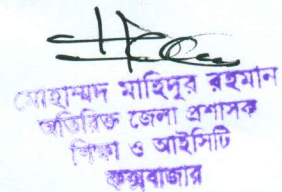 মোহাম্মদ মাহিদুর রহমান
অতিরিক্ত জেলা প্রশাসক
শিক্ষা ও আইসিটি
কক্সবাজার